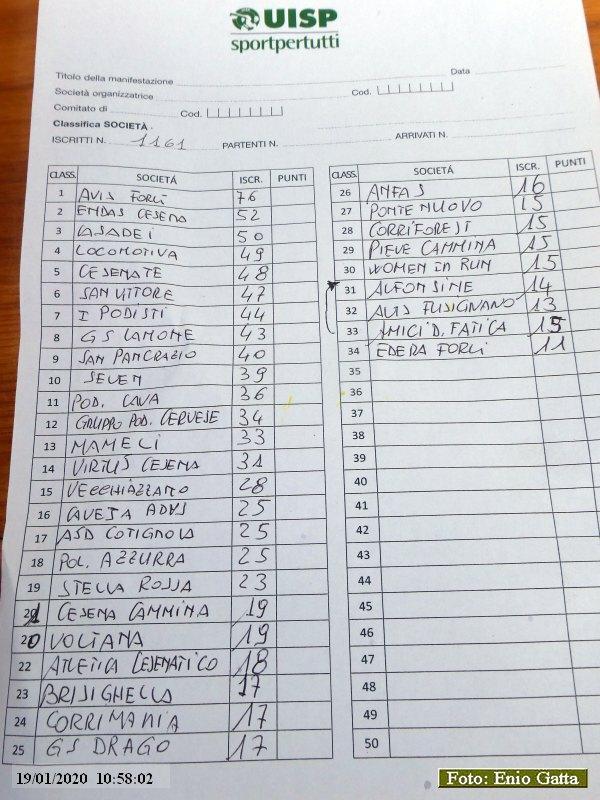 UISP
sportpertutti
Titolo della manifestazione
Data
Società organizzatrice
Cod.
Comitato di
Cod.
Classifica SOCIETÀ
ISCRITTI N. 1161 PARTENTI N. ARRIVATI N.
CLASS. SOCIETÀ ISCR. PUNTI
1 AVIS FORLÌ 76
2 ENDAS CESENA 52
3 CASADEI 50
4 LOCOMOTIVA 49
5 CESENATE 48
6 SAN VITTORE 47
7 I PODISTI 44
8 GS LAMONE 43
9 SAN PANCRAZIO 40
10 SEVEN 39
11 POD. CAVA 36
12 GRUPPO POD. CERVESE 34
13 MAMELI 33
14 VIRTUS CESENA 31
15 VECCHIAZZANO 28
16 CAVEJA ADVS 25
17 ASD COTIGNOLA 25
18 POL. AZZURRA 25
19 STELLA ROSSA 23
21 CESENA CAMMINA 19
20 VOLTANA 19
22 ATLETICA CESENATICO 18
23 BRISIGHELLA 17
24 CORRIMANIA 17
25 GS DRAGO 17
CLASS. SOCIETÀ ISCR. PUNTI
26 ANFAS 16
27 PONTE NUOVO 15
28 CORRIFOREST 15
29 PIEVE CAMMINA 15
30 WOMEN IN RUN 15
31 ALFONSINE 14
32 AVIS FUSIGNANO 13
33 AMICI D. FATICA 15
34 EDERA FORLÌ 11
35
36
37
38
39
40
41
42
43
44
45
46
47
48
49
50
19/01/2020 10:58:02
Foto: Enio Gatta